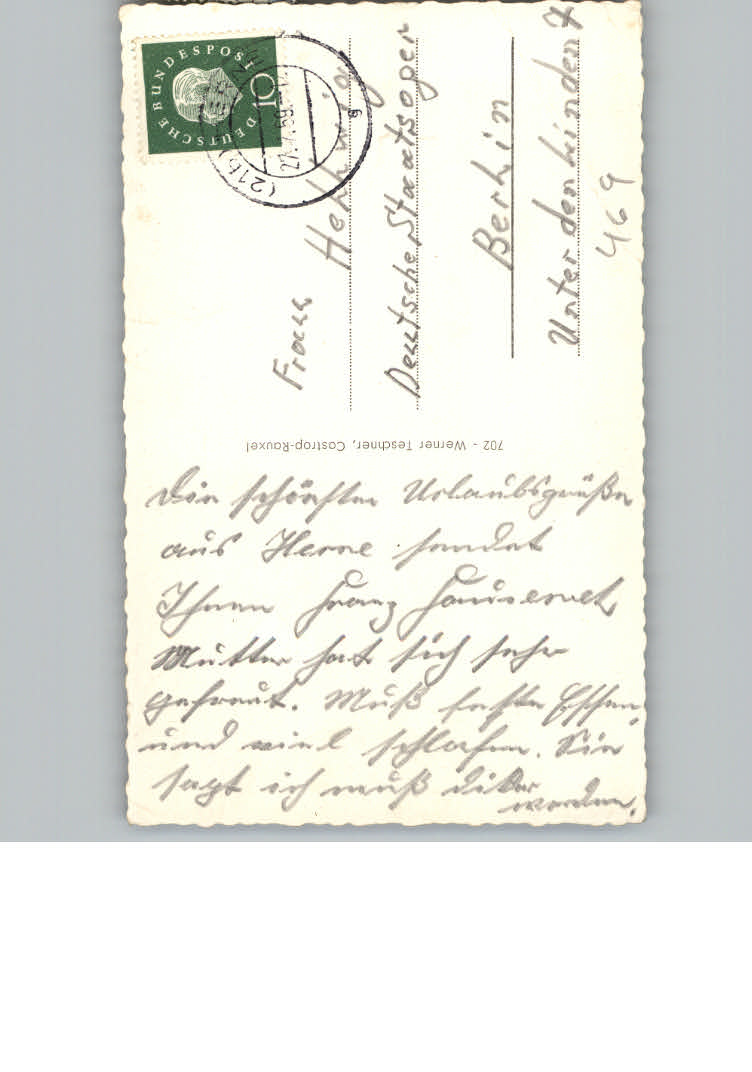 DEUTSCHE BUNDESPOST
10
(21b) HERNE
27.7.59
g
Frau
Hellwig
Deutsche Staatsoper
Berlin
Unter den Linden 7
469
702 - Werner Teschner, Castrop-Rauxel
Die schönsten Urlaubsgrüße
aus Herne sendet
Ihnen Franz
Mutter hat sich sehr
gefreut. Muß feste Essen,
und viel schlafen. Sie
sagt ich muß dicker
werden.